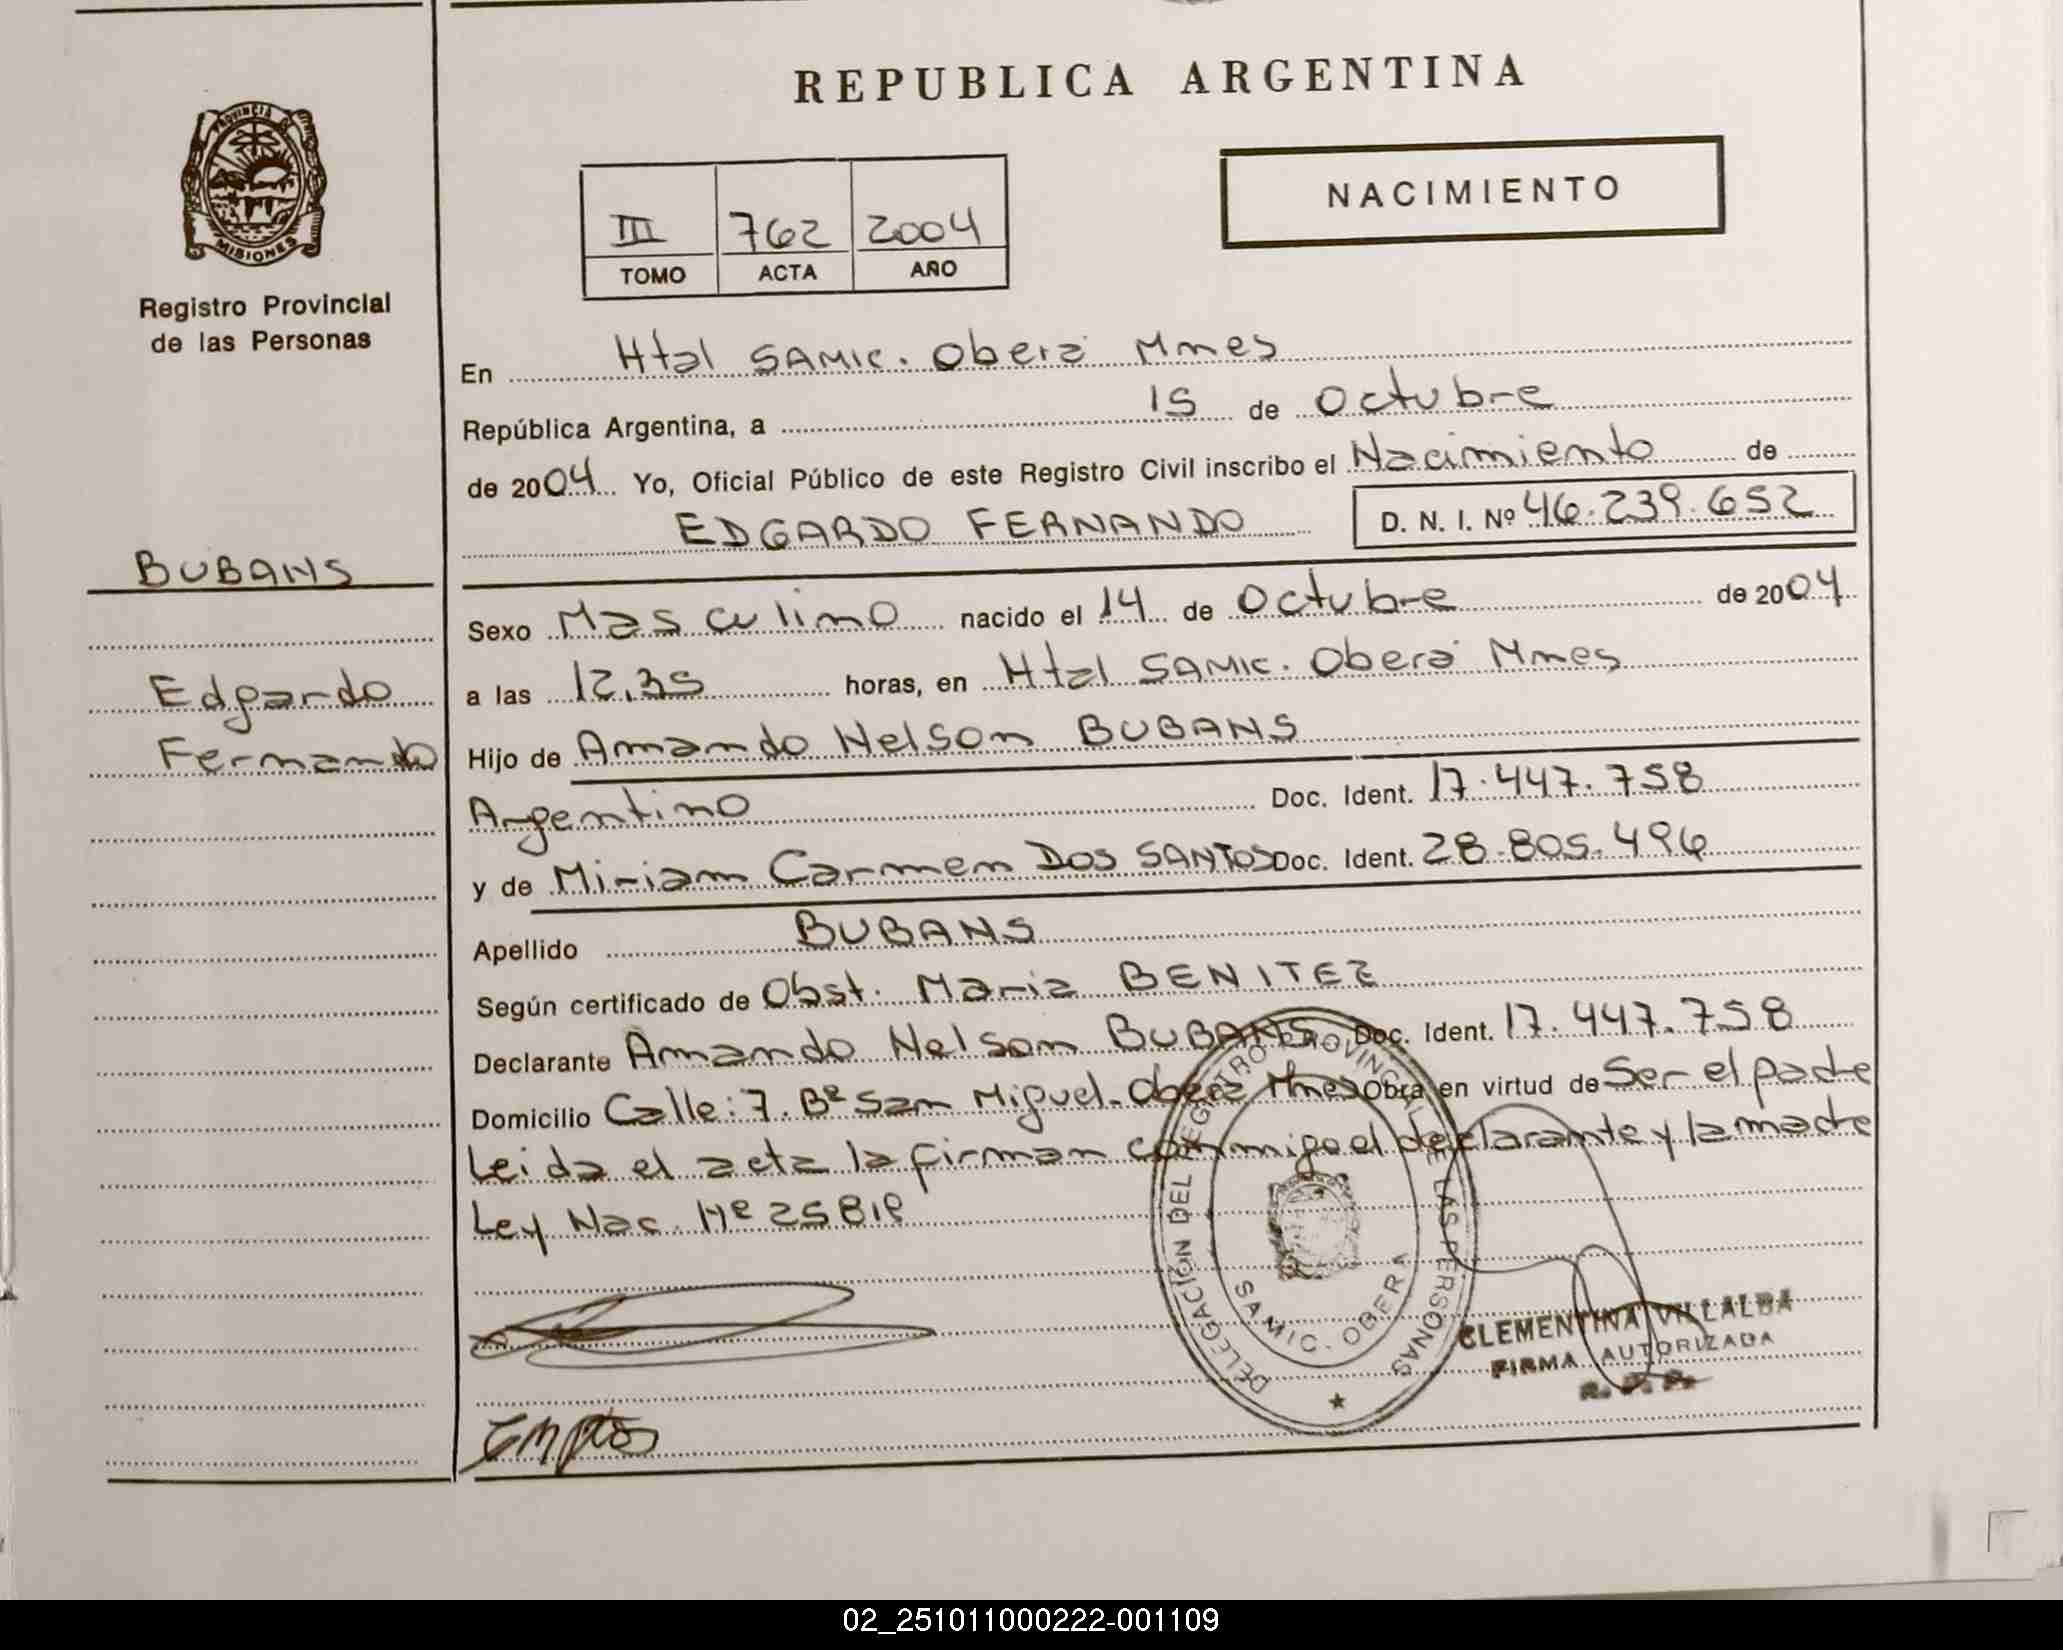 REPUBLICA ARGENTINA
PROVINCIA DE
MISIONES
Registro Provincial
de las Personas
NACIMIENTO
III 762 2004
TOMO ACTA AÑO
En Htal SAMIC. Oberá Mnes
República Argentina, a 15 de Octubre
de 2004 Yo, Oficial Público de este Registro Civil inscribo el Nacimiento de
EDGARDO FERNANDO D. N. I. Nº 46.239.652
BUBANS
Edgardo
Fernando
Sexo Masculino nacido el 14 de Octubre de 2004
a las 12,35 horas, en Htal SAMIC. Oberá Mnes
Hijo de Amando Nelson BUBANS
Argentino Doc. Ident. 17.447.758
y de Miriam Carmen DOS SANTOS Doc. Ident. 28.805.496
Apellido BUBANS
Según certificado de Obst. Maria BENITEZ
Declarante Amando Nelson BUBANS Doc. Ident. 17.447.758
Domicilio Calle: 7. Bº San Miguel - Oberá Mnes Obra en virtud de Ser el padre
Leida el acta la firman conmigo el declarante y la madre
Ley Nac. Nº 25819
DELEGACIÓN DEL REGISTRO PROVINCIAL DE LAS PERSONAS
SAMIC. OBERA
CLEMENTINA VILLALBA
FIRMA AUTORIZADA
R. P. P.
02_251011000222-001109